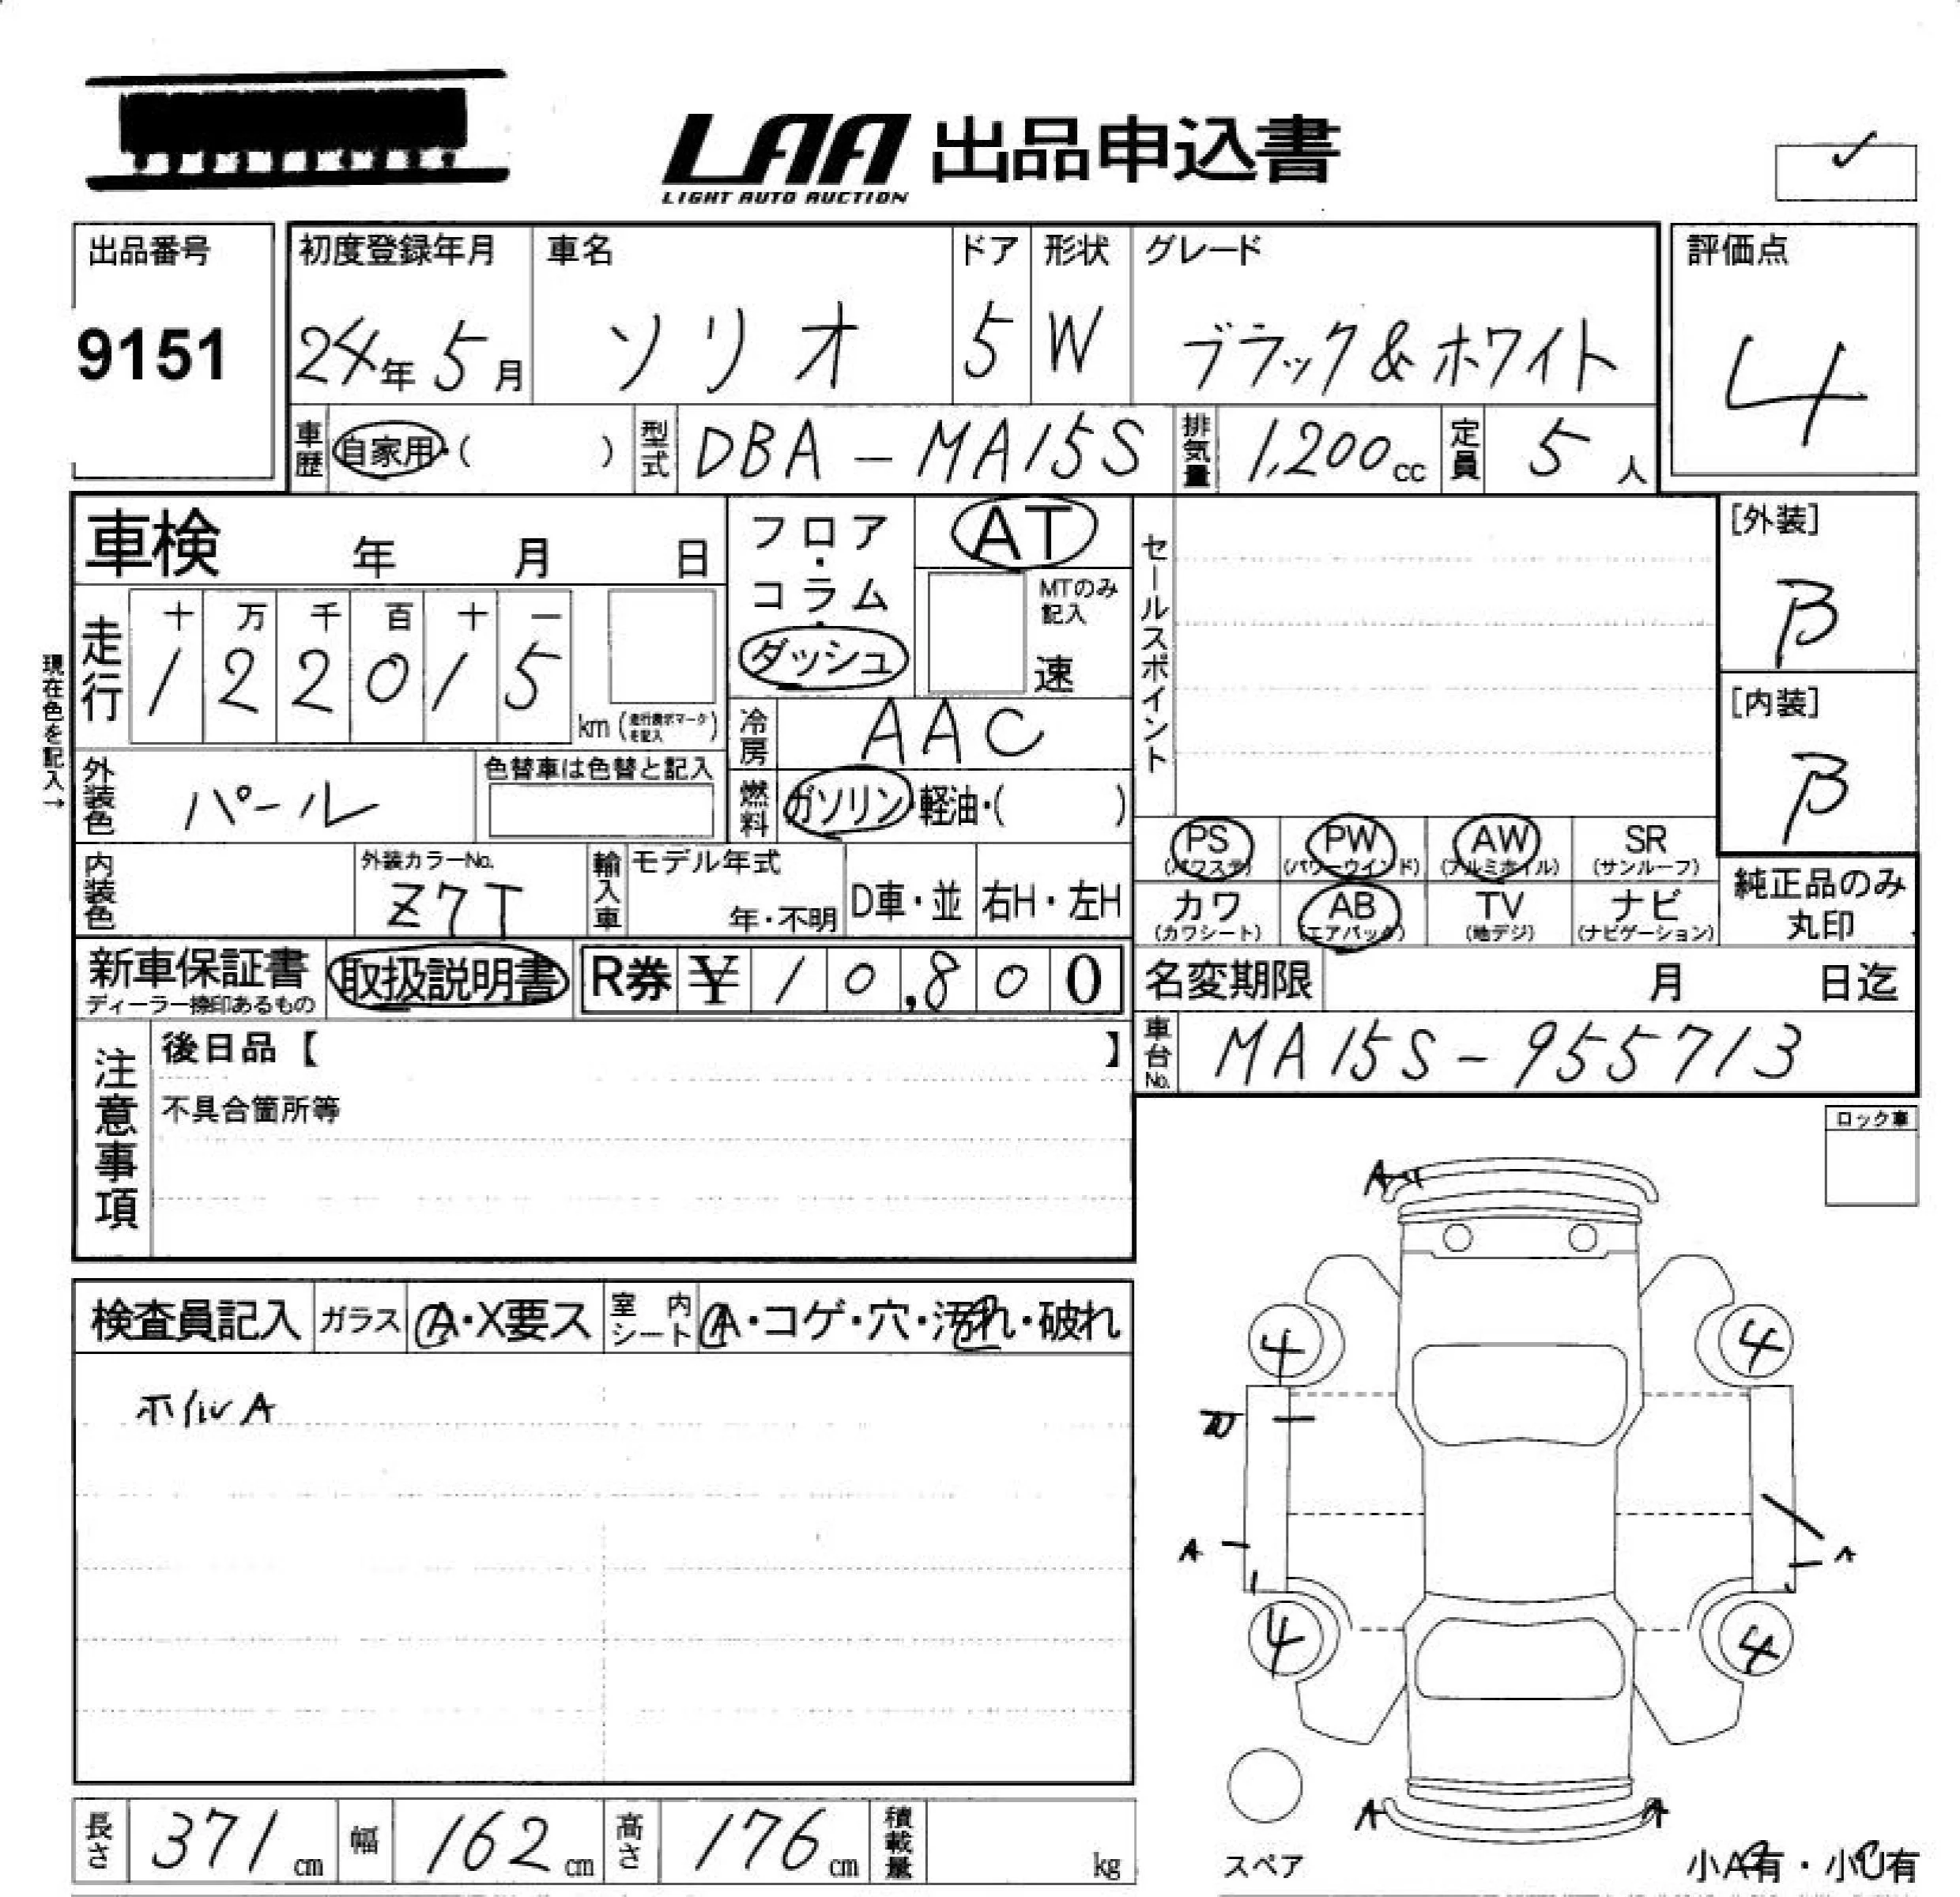 LAA 出品申込書
LIGHT AUTO AUCTION
出品番号
9151
初度登録年月
24年5月
車名
ソリオ
ドア
5
形状
W
グレード
ブラック&ホワイト
評価点
4
車歴
自家用・( )
型式
DBA-MA15S
排気量
1,200cc
定員
5人
車検 年 月 日
フロア・コラム・ダッシュ
AT
MTのみ記入
速
セールスポイント
[外装]
B
[内装]
B
現在色を記入→
走行
十 万 千 百 十 一
1 2 2 0 1 5
km(走行請求マークを記入)
冷房
AAC
外装色
パール
色替車は色替と記入
燃料
ガソリン・軽油・( )
PS
(パワステ)
PW
(パワーウインド)
AW
(アルミホイル)
SR
(サンルーフ)
カワ
(カワシート)
AB
(エアバック)
TV
(地デジ)
ナビ
(ナビゲーション)
純正品のみ
丸印
内装色
外装カラーNo.
Z7T
輸入車
モデル年式
年・不明
D車・並
右H・左H
新車保証書
ディーラー捺印あるもの
取扱説明書
R券 ¥ 10,800
名変期限 月 日迄
車台No.
MA15S-955713
注意事項
後日品【 】
不具合箇所等
ロック車
検査員記入
ガラス
A・X要ス
室内シート
A・コゲ・穴・汚れ・破れ
ホイルA
A
4
4
A
A
4
4
A
A
スペア
小A有・小U有
長さ
371cm
幅
162cm
高さ
176cm
積載量
kg